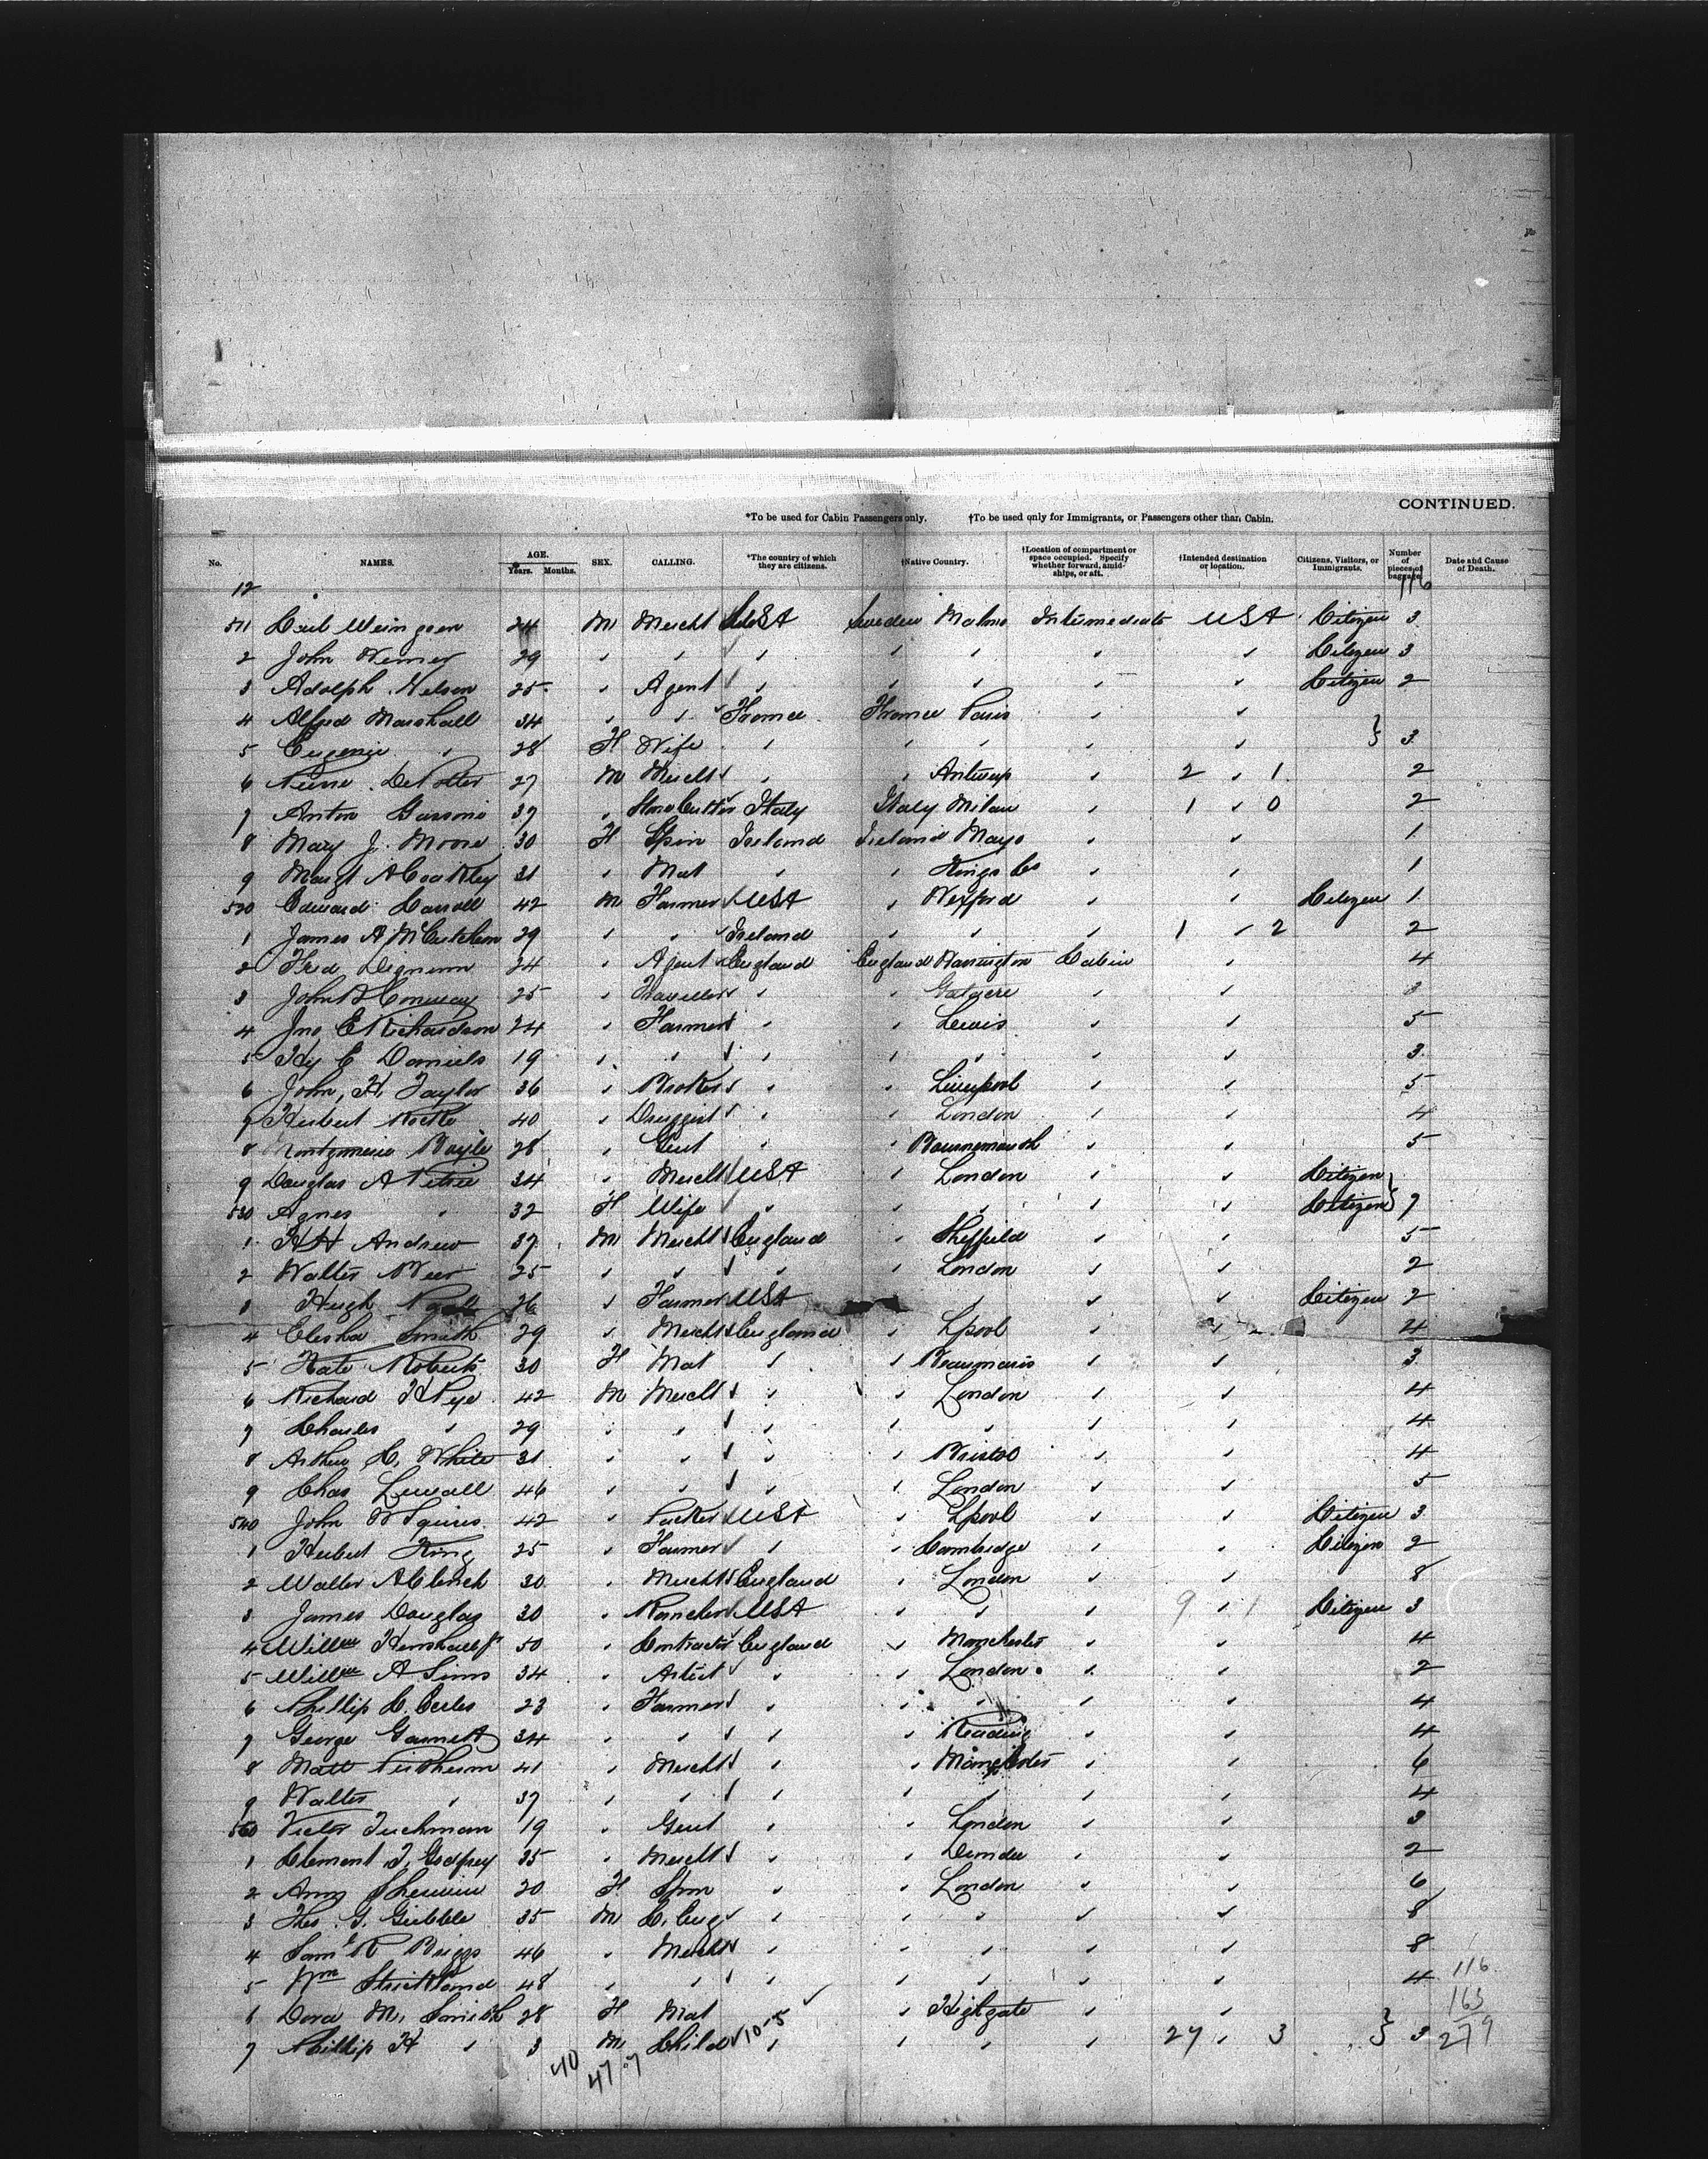 CONTINUED.
*To be used for Cabin Passengers only. †To be used only for Immigrants, or Passengers other than Cabin.
No. NAMES. AGE. Years. Months. SEX. CALLING. *The country of which they are citizens. †Native Country. †Location of compartment or space occupied. Specify whether forward, amidships, or aft. †Intended destination or location. Citizens, Visitors, or Immigrants. Number of pieces of baggage. Date and Cause of Death.
12 116
511 24 M Mercht USA Sweden Malmo Intermediate USA Citizen 3
2 John 29 ✓ ✓ ✓ ✓ ✓ ✓ ✓ Citizen 3
3 Adolph Nelson 25 ✓ Agent ✓ ✓ ✓ ✓ ✓ Citizen 2
4 Alfred Marshall 34 ✓ ✓ France France Paris ✓ ✓
5 Eugenie ✓ 28 F Wife ✓ ✓ ✓ ✓ ✓ } 3
6 27 M Mercht ✓ ✓ Antwerp ✓ 2 ✓ 1 2
7 Anton 37 ✓ Italy Italy Milan ✓ 1 ✓ 0 2
8 Mary J. Moore 30 F Spin Ireland Ireland Mayo ✓ ✓ 1
9 Margt A Coakley 31 ✓ Mat ✓ ✓ Kings Co ✓ ✓ 1
520 Edward Carroll 42 M Farmer USA ✓ Wexford ✓ ✓ Citizen 1
1 James A McCutcheon 29 ✓ ✓ Ireland ✓ ✓ ✓ 1 ✓ 2 2
2 Fred Dignum 24 ✓ Agent England England Warrington Cabin ✓ 4
3 John Conway 25 ✓ Traveller ✓ ✓ ✓ ✓ 3
4 Jno E Richardson 24 ✓ Farmer ✓ ✓ Lewis ✓ ✓ 5
5 Hy E Daniels 19 ✓ ✓ ✓ ✓ ✓ ✓ ✓ 3
6 John H. Taylor 36 ✓ Broker ✓ ✓ Liverpool ✓ ✓ 5
7 Herbert 40 ✓ Druggist ✓ ✓ London ✓ ✓ 4
8 Montgomerie Boyle 28 ✓ Gent ✓ ✓ Bournemouth ✓ ✓ 5
9 Douglas A Petrie 34 ✓ Mercht USA ✓ London ✓ ✓ Citizen
530 Agnes ✓ 32 F Wife ✓ ✓ ✓ ✓ ✓ Citizen } 7
1 H H Andrew 37 M Mercht England ✓ Sheffield ✓ ✓ 5
2 Walter 25 ✓ ✓ ✓ ✓ London ✓ ✓ 2
3 Hugh 26 ✓ Farmer USA ✓ ✓ ✓ Citizen 2
4 Elisha Smith 29 ✓ Mercht England ✓ Lpool ✓ ✓ 4
5 Kate Roberts 30 F Mat ✓ ✓ Beaumaris ✓ ✓ 3
6 Richard H Pye 42 M Mercht ✓ ✓ London ✓ ✓ 4
7 Charles ✓ 29 ✓ ✓ ✓ ✓ ✓ ✓ ✓ 4
8 Arthur C. White 31 ✓ ✓ ✓ ✓ Bristol ✓ ✓ 4
9 Chas 46 ✓ ✓ ✓ ✓ London ✓ ✓ 5
540 John W Squires 42 ✓ Packer USA ✓ Lpool ✓ ✓ Citizen 3
1 Herbert King 25 ✓ Farmer ✓ ✓ Cambridge ✓ ✓ Citizen 2
2 Walter A Clench 30 ✓ Mercht England ✓ London ✓ ✓ 8
3 James Douglas 30 ✓ Rancher USA ✓ ✓ ✓ 9 ✓ 1 Citizen 3
4 Willm Henshall Jr 50 ✓ Contractor England ✓ Manchester ✓ ✓ 4
5 Willm A Sims 34 ✓ Artist ✓ ✓ London ✓ ✓ 2
6 Phillip C. Eccles 23 ✓ Farmer ✓ ✓ ✓ ✓ ✓ 4
7 George Garnett 34 ✓ ✓ ✓ ✓ Reading ✓ ✓ 4
8 Matt 41 ✓ Mercht ✓ ✓ Manchester ✓ ✓ 6
9 Walter ✓ 37 ✓ ✓ ✓ ✓ ✓ ✓ ✓ 4
550 Victor Tuchman 19 ✓ Gent ✓ ✓ London ✓ ✓ 3
1 Clement T. Godfrey 35 ✓ Mercht ✓ ✓ Dundee ✓ ✓ 2
2 Amy Sherwin 20 F Spin ✓ ✓ London ✓ ✓ 6
3 Thos. G. Gribble 35 M C. Eng ✓ ✓ ✓ ✓ ✓ 8
4 Saml R Briggs 46 ✓ Mercht ✓ ✓ ✓ ✓ ✓ 8
5 Wm Strickland 48 ✓ ✓ ✓ ✓ ✓ ✓ ✓ 4 116
6 Dora M. Smith 28 F Mat ✓ ✓ Highgate ✓ ✓ 163
7 Phillip H ✓ 3 M Child 10-5 ✓ ✓ ✓ ✓ 27 ✓ 3 } 3 279
40 47 7